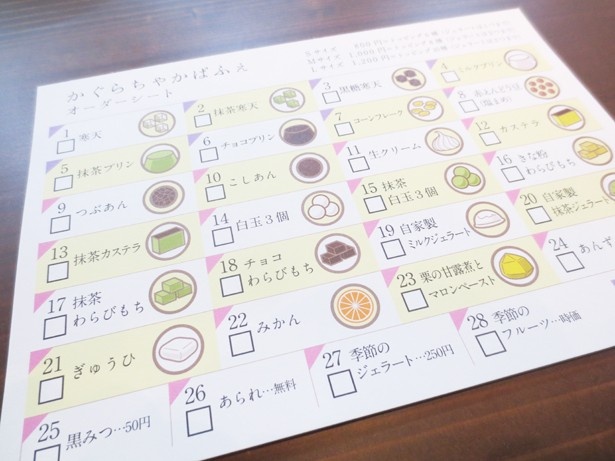 かぐらちゃかぱふぇ
オーダーシート
Sサイズ
Mサイズ
Lサイズ
1 寒天
2 抹茶寒天
3 黒糖寒天
4 ミルクプリン
5 抹茶プリン
6 チョコプリン
7 コーンフレーク
8 赤えんどう豆
(塩まめ)
9 つぶあん
10 こしあん
11 生クリーム
12 カステラ
13 抹茶カステラ
14 白玉3個
15 抹茶
白玉3個
16 きな粉
わらびもち
17 抹茶
わらびもち
18 チョコ
わらびもち
19 自家製
ミルクジェラート
20 自家製
抹茶ジェラート
21 ぎゅうひ
22 みかん
23 栗の甘露煮と
マロンペースト
24 あんず
25 黒みつ…50円
26 あられ…無料
27 季節の
ジェラート…250円
28 季節の
フルーツ…時価